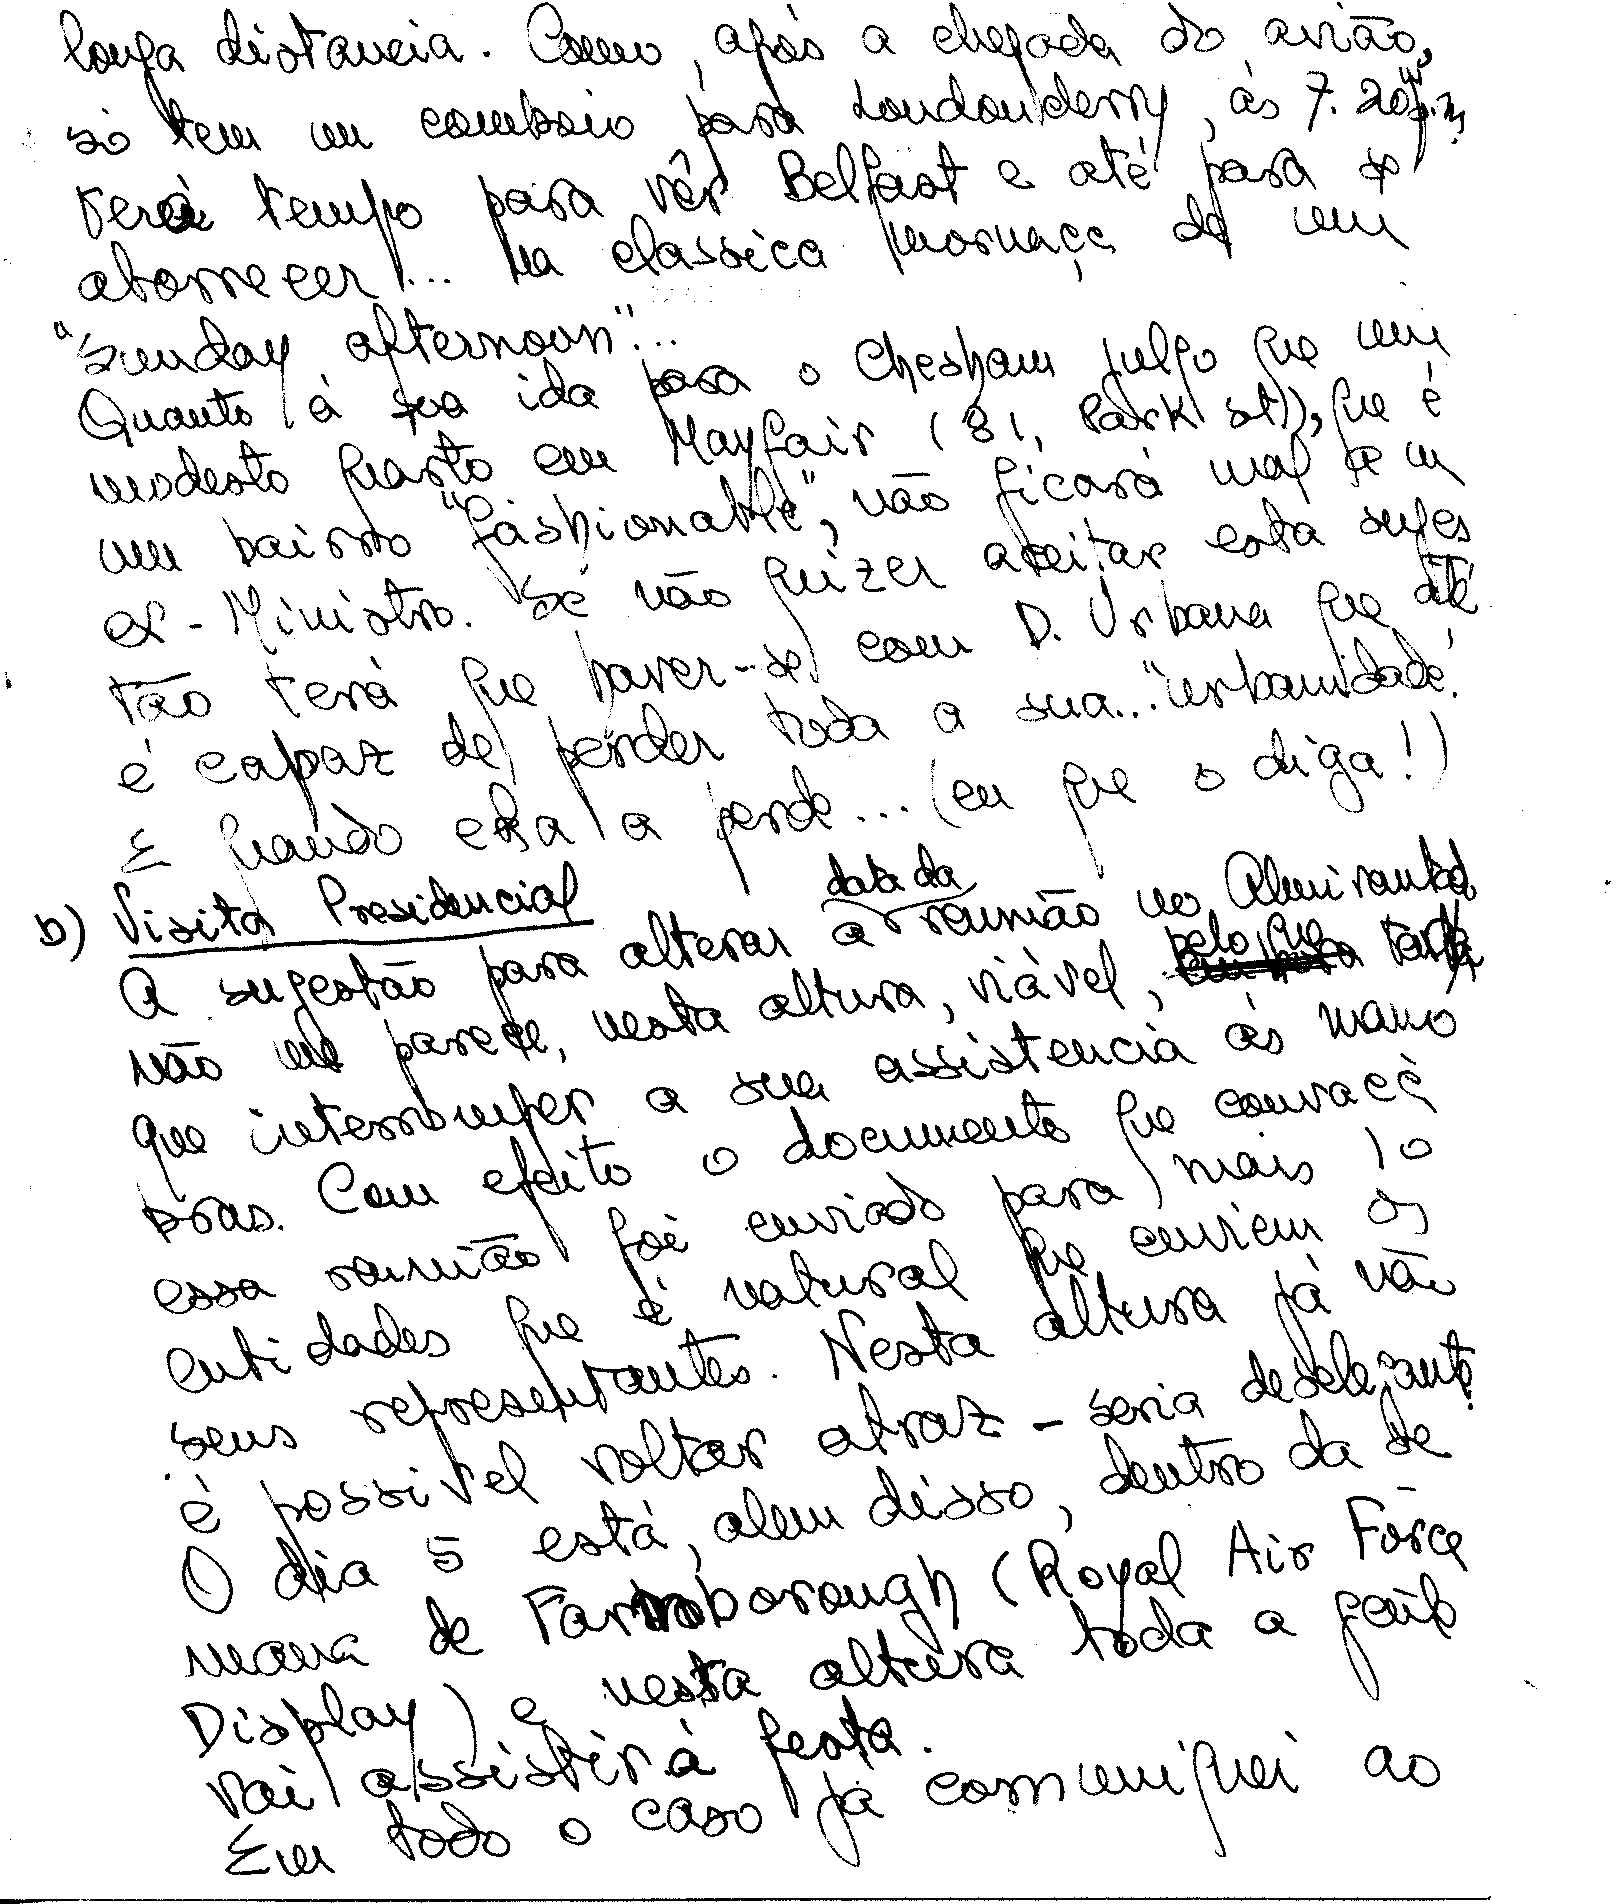 longa distancia. Como, após a chegada do avião,
só tem um comboio para Londonderry, ás 7.20 p.m,
terá tempo para vêr Belfast e até para se
aborrecer... na classica mornaça de um
"sunday afternoon"...
Quanto á sua ida para o Chesham julgo que um
modesto quarto em Mayfair (81, Park St), que é
um bairro "fashionable", não ficará mal a um
ex-Ministro. Se não quizer aceitar esta suges
tão terá que haver-se com D. Urbana que até
é capaz de perder toda a sua... "urbanidade".
E quando ela a perde... (eu que o diga!)
b) Visita Presidencial
data da
A sugestão para alterar a reunião no Almirantado
não me parece, nesta altura, viável, pelo que terá
que interromper a sua assistencia ás mano
bras. Com efeito o documento que convoca
essa reunião foi enviado para mais 10
entidades que é natural que enviem os
seus representantes. Nesta altura já não
é possivel voltar atraz - seria deselegante.
O dia 5 está, alem disso, dentro da se
mana de Farnborough (Royal Air Force
Display) e nesta altura toda a gente
vai assistir á festa.
Em todo o caso já comuniquei ao